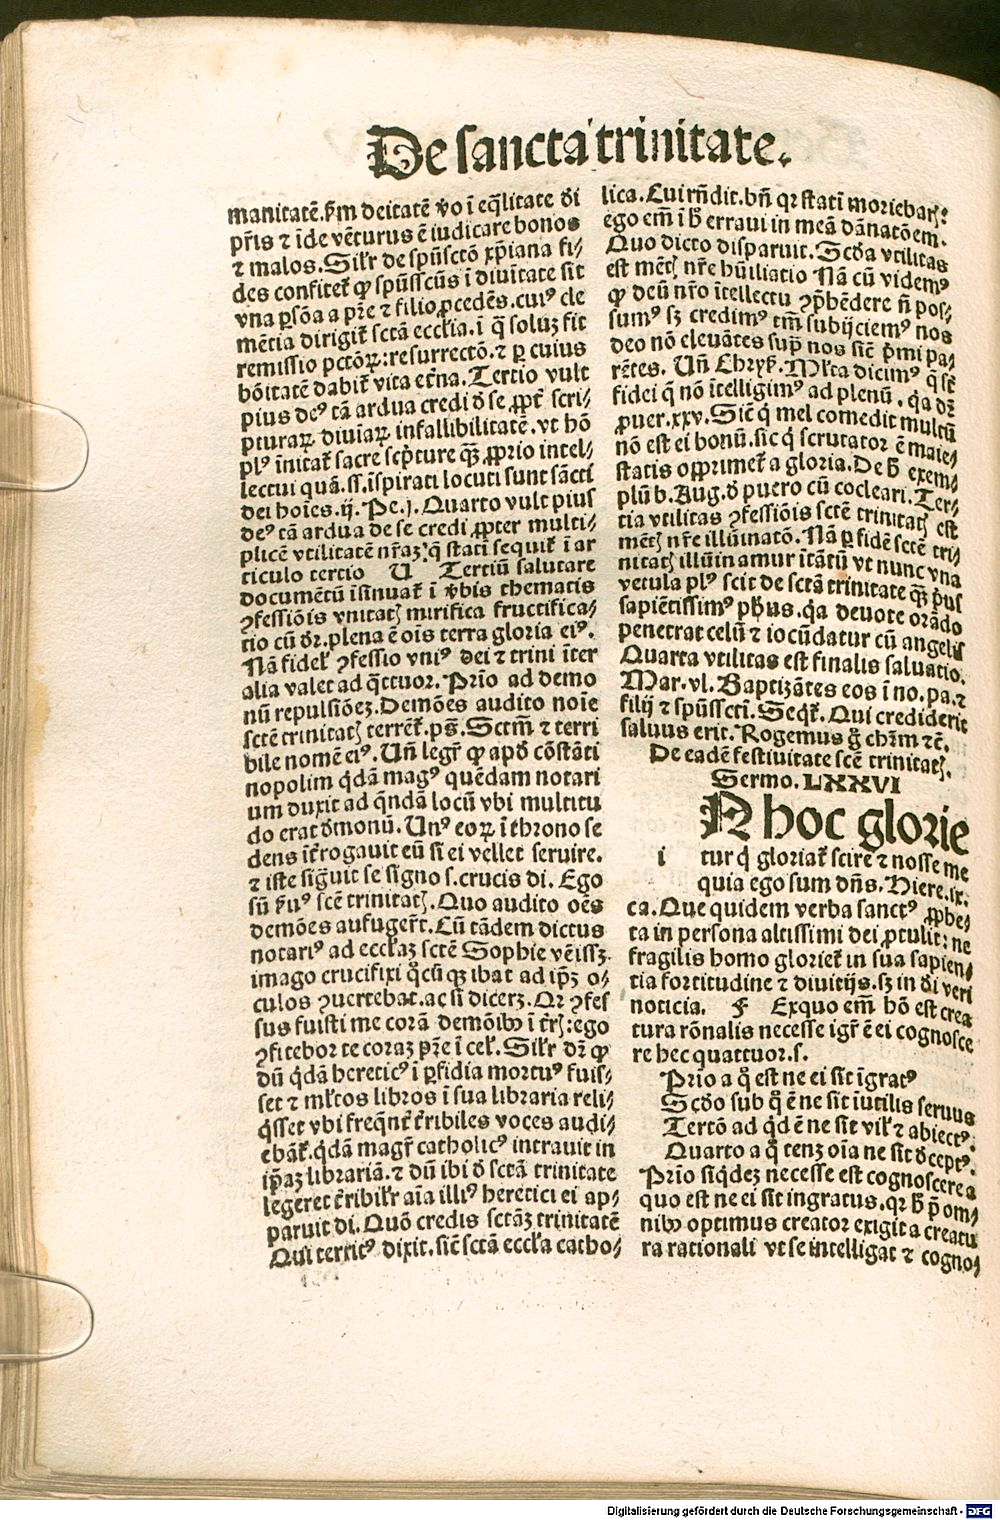 De sancta trinitate.
manitatē. ẜm deitatē ṽo ī eq̄litate dī
pr̄is ⁊ īde vēturus ē iudicare bonos
⁊ malos. Silr̄ de spūsctō xp̄iana fi⸗
des confitet̄ ꝙ spūsscūs ī diuītate sit
vna ꝑsōa a pr̄e ⁊ filio ꝓcedēs. cuiꝰ cle
mētia dirigit̄ sctā eccl̄ia. ī q̄ soluʒ fit
remissio pctōꝝ: resurrectō. ⁊ ꝑ cuius
bōitatē dabit̄ vita et̄na. Tertio vult
pius deꝰ tā ardua credi d̄ se ꝓpt̄ scri⸗
pturaꝝ diuīaꝝ infallibilitatē. vt hō
plꝰ īnitat̄ sacre scp̄ture q̄ʒ ꝓprio intel⸗
lectui quā. ss. īspirati locuti sunt sācti
dei hoīes. ij. Pe. j. Quarto vult pius
deꝰ tā ardua de se credi ꝓpter multi⸗
plicē vtilitatē nr̄aʒ: q̄ stati sequit̄ ī ar
ticulo tertio V Tertiū salutare
documētū īsinuat̄ ī v̄bis thematis
ꝯfessiōis vnitatꝭ mirifica fructifica⸗
tio cū dr̄. plena ē oīs terra gloria eiꝰ.
Nā fidel̄ ꝯfessio vniꝰ dei ⁊ trini īter
alia valet ad q̄ttuor. Prīo ad demo
nū repulsiōeʒ. Demōes audito noīe
sctē trinitatꝭ terrēt̄. ps̄. Sctm̄ ⁊ terri
bile nomē eiꝰ. Un̄ legr̄ ꝙ apd̄ cōstāti
nopolim q̄dā magꝰ quēdam notari
um duxit ad q̄ndā locū vbi multitu
do erat d̄monū. Unꝰ eoꝝ ī throno se
dens īt̄rogauit eū si ei vellet seruire.
⁊ iste sign̄uit se signo s. crucis di. Ego
sū ẜuꝰ scē trinitatꝭ. Quo audito oēs
demōes aufuger̄t. Cū tādem dictus
notariꝰ ad eccl̄aʒ sctē Sophie vēissʒ.
imago crucifixi q̊cūqʒ ibat ad ip̄ʒ o⸗
culos ꝯuertebat. ac si dicerʒ. Qr ꝯfes
sus fuisti me corā demōibꝰ ī tr̄ꝭ: ego
ꝯfitebor te coraʒ pr̄e ī cel̄. Silr̄ dʒ̄ ꝙ
dū q̄dā hereticꝰ ī ꝑfidia mortuꝰ fuis⸗
set ⁊ ml̄tos libros ī sua libraria reli⸗
q̄sset vbi freq̄nt̄ t̄ribiles voces audi⸗
ebāt̄. q̄dā magr̄ catholicꝰ intrauit in
ip̄aʒ librariā. ⁊ dū ibi d̄ sctā trinitate
legeret t̄ribilr̄ aīa illiꝰ heretici ei ap⸗
paruit di. Quō credis sctāʒ trinitatē
Qui territꝰ dixit. siē sctā eccl̄a catho⸗
lica. Cui rn̄dit. bn̄ qr statī moriebarꝭ:
ego em̄ ī ħ erraui in meā dānatōem.
Quo dicto disparuit. Scd̄a vtilitas
est mētꝭ nr̄e hūiliatio Nā cū videmꝰ
ꝙ deū nr̄o ītellectu ꝯp̄hēdere n̄ pos⸗
sumꝰ sʒ credimꝰ tm̄ subijciemꝰ nos
deo nō eleuātes sup̄ nos siē p̄mi pa⸗
rētes. Un̄ Chrẏẜ. Ml̄ta dicimꝰ q̄ st̄
fidei q̄ nō ītelligimꝰ ad plenū. q̄a dʒ̄
ꝓuer. xxv. Siē q̄ mel comedit multū
nō est ei bonū. sic q̄ scrutator ē maie⸗
statis opprimet̄ a gloria. De ħ exem⸗
plū b. Aug. d̄ puero cū cocleari. Ter⸗
tia vtilitas ꝯfessiōis sctē trinitatꝭ est
mētꝭ nr̄e illūinatō. Nā ꝑ fidē sctē tri⸗
nitatꝭ illūinamur ītātū vt nunc vna
vetula plꝰ scit de sctā trinitate q̄ʒ pͥus
sapiētissimꝰ ph̄us. q̄a deuote orādo
penetrat celū ⁊ iocūdatur cū angelis
Quarta vtilitas est finalis saluatio.
Mar. vl. Baptizātes eos ī no. pa. ⁊
filij ⁊ spūsscti. Seqt̄. Qui crediderit
saluus erit. Rogemus g̊ chr̄m ⁊cē.
De eadē festiuitate scē trinitatꝭ.
Sermo. LXXVI
N hoc glorie
i tur q̄ gloriat̄ scire ⁊ nosse me
quia ego sum dn̄s. Hiere. ix.
ca. Que quidem verba sanctꝰ ꝓphe⸗
ta in persona altissimi dei ꝓtulit: ne
fragilis homo gloriet̄ in sua sapien⸗
tia fortitudine ⁊ diuitijs. sʒ in dī veri
noticia. F Exquo em̄ hō est crea
tura rōnalis necesse igr̄ ē ei cognosce
re hec quattuor. s.
Prīo a q̊ est ne ei sit īgratꝰ
Scd̄o sub q̊ ē ne sit īutilis seruus
Tertō ad q̄d ē ne sit vil̄ ⁊ abiectꝰ.
Quarto a q̊ tenʒ oīa ne sit d̄ceptꝰ.
Prīo siq̄deʒ necesse est cognoscere a
quo est ne ei sit ingratus. qr ħ p̄ om⸗
nibꝰ optimus creator exigit a creatu
ra rationali vt se intelligat ⁊ cogno⸗
Digitalisierung gefördert durch die Deutsche Forschungsgemeinschaft - DFG